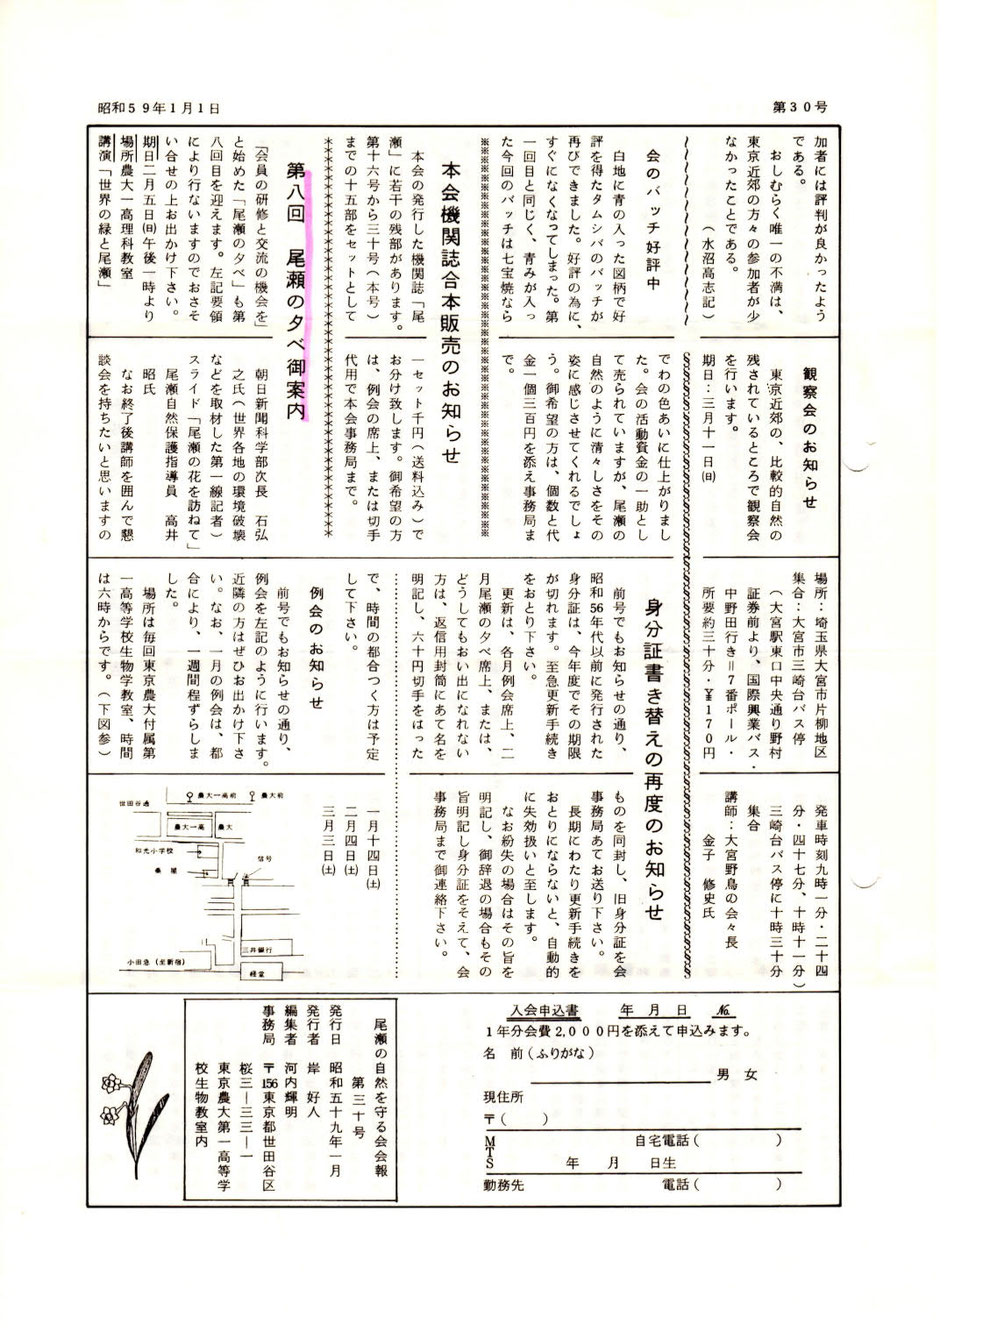 昭和59年1月1日
第30号
加者には評判が良かったよう
である。
おしむらく唯一の不満は、
東京近郊の方々の参加者が少
なかったことである。
(水沼高志記)
会のバッチ好評中
白地に青の入った図柄で好
評を得たタムシバのバッチが
再びできました。好評の為に、
すぐになくなってしまった。第
一回目と同じく、青みが入っ
た今回のバッチは七宝焼なら
でわの色あいに仕上がりまし
た。会の活動資金の一助とし
て売られていますが、尾瀬の
自然のように清々しさをその
姿に感じさせてくれるでしょ
う。御希望の方は、個数と代
金一個三百円を添え事務局ま
で。
※※※※※※※※※※※※※※※※※※※※※※※※※※※※※※
本会機関誌合本販売のお知らせ
本会の発行した機関誌「尾
瀬」に若干の残部があります。
第十六号から三十号(本号)
までの十五部をセットとして
一セット千円(送料込み)で
お分け致します。御希望の方
は、例会の席上、または切手
代用で本会事務局まで。
******************************
第八回 尾瀬の夕べ御案内
「会員の研修と交流の機会を」
と始めた「尾瀬の夕べ」も第
八回目を迎えます。左記要領
により行ないますのでおさそ
い合せの上お出かけ下さい。
期日二月五日(日)午後一時より
場所農大一高理科教室
講演「世界の緑と尾瀬」
朝日新聞科学部次長 石弘
之氏(世界各地の環境破壊
などを取材した第一線記者)
スライド「尾瀬の花を訪ねて」
尾瀬自然保護指導員 高井
昭氏
なお終了後講師を囲んで懇
談会を持ちたいと思いますの
で、時間の都合つく方は予定
して下さい。
観察会のお知らせ
東京近郊の、比較的自然の
残されているところで観察会
を行います。
期日:三月十一日(日)
場所:埼玉県大宮市片柳地区
集合:大宮市三崎台バス停
(大宮駅東口中央通り野村
証券前より、国際興業バス・
中野田行き=7番ポール・
所要約三十分・¥170円
発車時刻九時一分・二十四
分・四十七分、十時十一分)
三崎台バス停に十時三十分
集合
講師:大宮野鳥の会々長
金子 修史氏
身分証書き替えの再度のお知らせ
前号でもお知らせの通り、
昭和56年代以前に発行された
身分証は、今年度でその期限
が切れます。至急更新手続き
をおとり下さい。
更新は、各月例会席上、二
月尾瀬の夕べ席上、または、
どうしてもおい出になれない
方は、返信用封筒にあて名を
明記し、六十円切手をはった
ものを同封し、旧身分証を会
事務局あてお送り下さい。
長期にわたり更新手続きを
おとりにならないと、自動的
に失効扱いと至します。
なお紛失の場合はその旨を
明記し、御辞退の場合もその
旨明記し身分証をそえて、会
事務局まで御連絡下さい。
例会のお知らせ
前号でもお知らせの通り、
例会を左記のように行います。
近隣の方はぜひお出かけ下さ
い。なお、一月の例会は、都
合により、一週間程ずらしま
した。
場所は毎回東京農大付属第
一高等学校生物学教室、時間
は六時からです。(下図参)
一月十四日(土)
二月四日(土)
三月三日(土)
世田谷通
農大一高前
農大前
農大一高
農大
和光小学校
信号
三井銀行
小田急(至新宿)
経堂
入会申込書 年 月 日 №
1年分会費2,000円を添えて申込みます。
名 前(ふりがな)
男 女
現住所
〒( )
自宅電話( )
M
T
S 年 月 日生
勤務先 電話( )
尾瀬の自然を守る会会報
第三十号
発行日 昭和五十九年一月
発行者 岸 好人
編集者 河内輝明
事務局 〒156東京都世田谷区
桜三―三三―一
東京農大第一高等学
校生物教室内